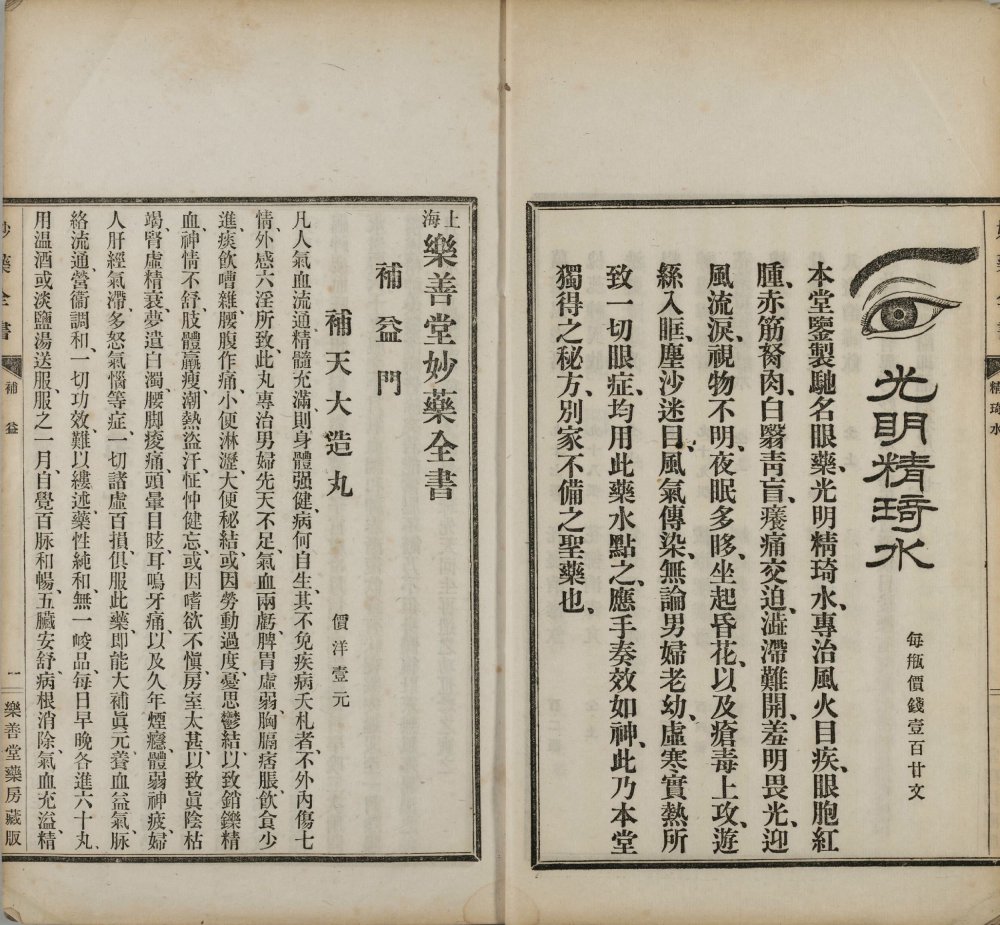 精琦水
光明精琦水
每瓶價錢壹百廿文
本堂鑒製馳名眼藥光明精琦水、專治風火目疾、眼胞紅
腫、赤筋胬肉、白翳靑盲、癢痛交迫、澁滯難開、羞明畏光、迎
風流淚、視物不明、夜眠多眵、坐起昏花、以及瘡毒上攻、遊
絲入眶、塵沙迷目、風氣傳染、無論男婦老幼、虛寒實熱所
致一切眼症、均用此藥水點之、應手奏效如神、此乃本堂
獨得之秘方、別家不備之聖藥也、
上海樂善堂妙藥全書
補益門
補天大造丸
價洋壹元
凡人氣血流通、精髓充滿、則身體强健、病何自生、其不免疾病夭札者、不外內傷七
情、外感六淫所致、此丸專治男婦先天不足、氣血兩虧、脾胃虛弱、胸膈痞脹、飲食少
進、痰飲嘈雜、腰腹作痛、小便淋瀝、大便秘結、或因勞動過度、憂思鬱結、以致銷鑠精
血、神情不舒、肢體羸瘦、潮熱盜汗、怔忡健忘、或因嗜欲不愼、房室太甚、以致眞陰枯
竭、腎虛精衰、夢遺白濁、腰脚痠痛、頭暈目眩、耳鳴牙痛、以及久年煙癮、體弱神疲、婦
人肝經氣滯、多怒氣惱等症、一切諸虛百損、俱服此藥、卽能大補眞元、養血益氣、脈
絡流通、營衞調和、一切功效、難以縷述、藥性純和、無一峻品、每日早晚各進六十丸、
用温酒或淡鹽湯送服、服之一月、自覺百脉和暢、五臟安舒、病根消除、氣血充溢、精
妙藥全書
補益
一
樂善堂藥房藏版